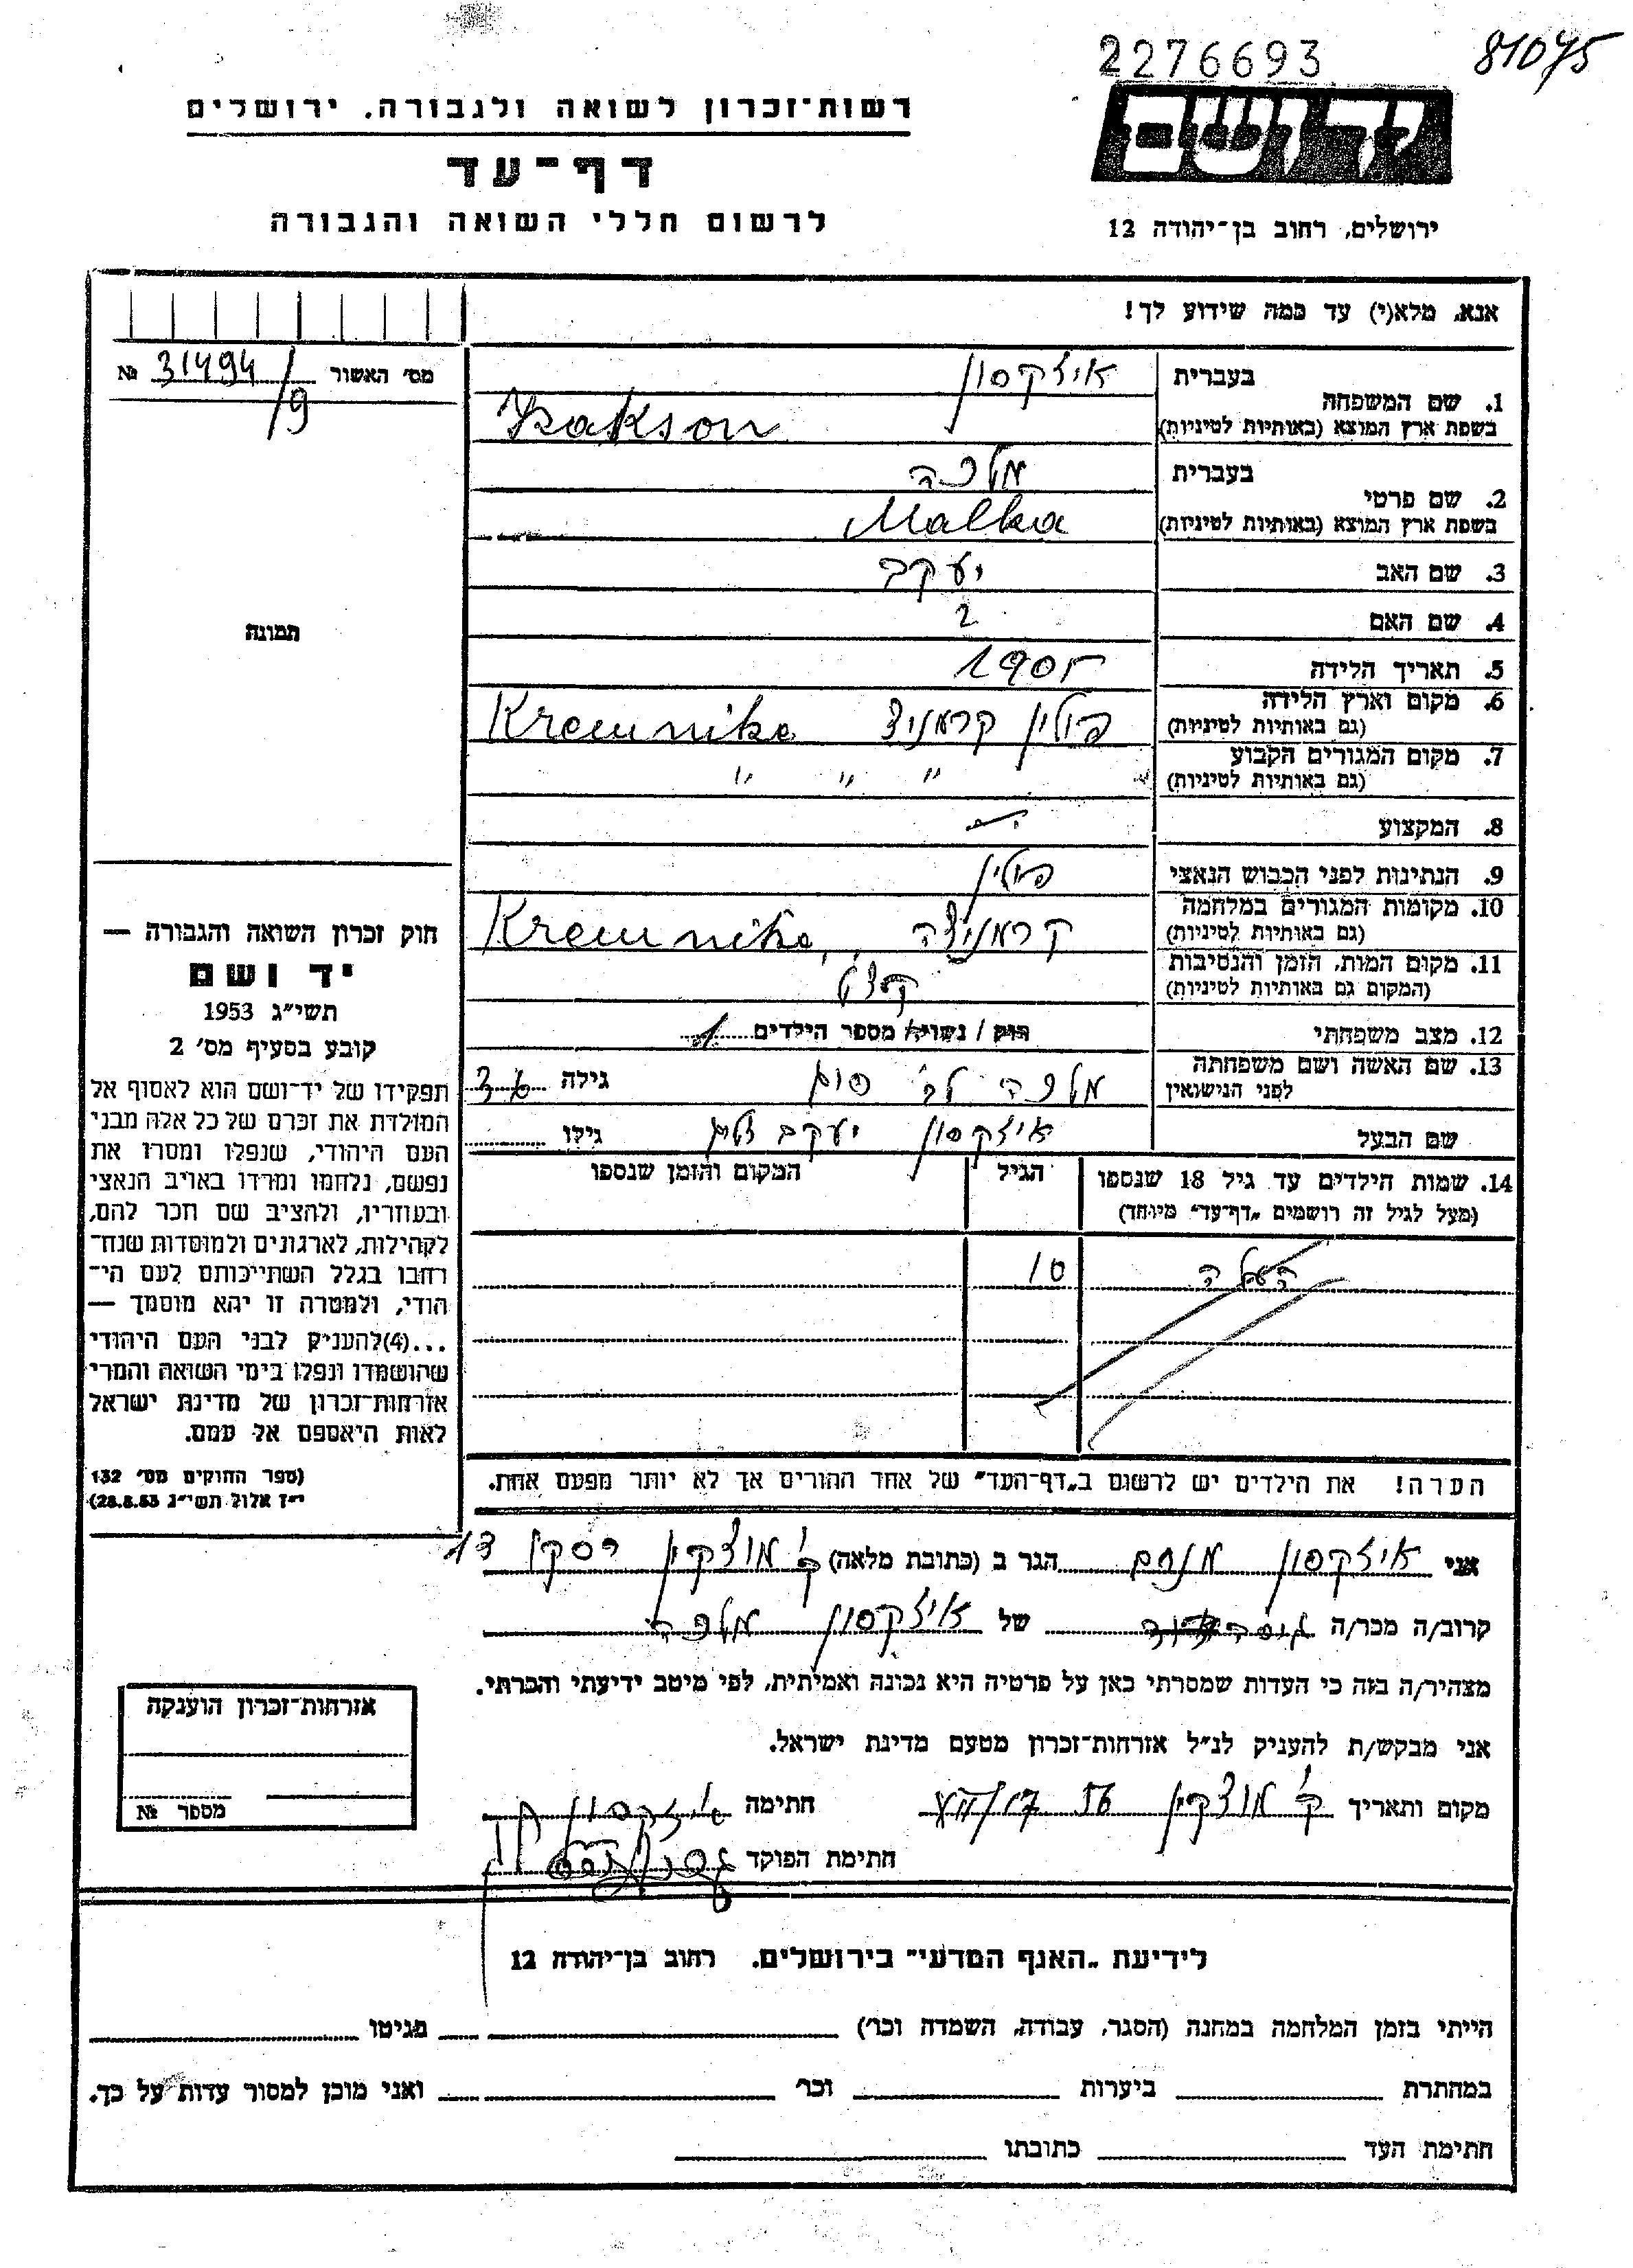 2276693
81075
רשות־זכרון לשואה ולגבורה. ירושלים
דף־עד
לרשום חללי השואה והגבורה
יד ושם
ירושלים, רחוב בן־יהודה 12
אנא, מלא(י) עד כמה שידוע לך!
מס׳ האשור 31494/9 №
1. שם המשפחה
בעברית איזקסון
בשפת ארץ המוצא (באותיות לטיניות) Izakson
2. שם פרטי
בעברית מלכה
בשפת ארץ המוצא (באותיות לטיניות) Malka
3. שם האב יעקב
4. שם האם
5. תאריך הלידה 1905
6. מקום וארץ הלידה
(גם באותיות לטיניות)
פולין קרמניצ
7. מקום המגורים הקבוע
(גם באותיות לטיניות)
" " "
8. המקצוע
9. הנתינות לפני הכבוש הנאצי פולין
10. מקומות המגורים במלחמה
(גם באותיות לטיניות)
קרמניצה
11. מקום המות, הזמן והנסיבות
(המקום גם באותיות לטיניות)
12. מצב משפחתי
רוק / נשוי/א מספר הילדים 1
13. שם האשה ושם משפחתה
לפני הנישואין
מלכה לב׳ גילה
שם הבעל איזקסון יעקב גילו
14. שמות הילדים עד גיל 18 שנספו
(מעל לגיל זה רושמים „דף־עד״ מיוחד)
הגיל
המקום והזמן שנספו
10
הערה! את הילדים יש לרשום ב„דף־העד״ של אחד ההורים אך לא יותר מפעם אחת.
תמונה
חוק זכרון השואה והגבורה —
יד ושם
תשי״ג 1953
קובע בסעיף מס׳ 2
תפקידו של יד־ושם הוא לאסוף אל
המולדת את זכרם של כל אלה מבני
העם היהודי, שנפלו ומסרו את
נפשם, נלחמו ומרדו באויב הנאצי
ובעוזריו, ולהציב שם וזכר להם,
לקהילות, לארגונים ולמוסדות שנח־
רבו בגלל השתייכותם לעם הי־
הודי, ולמטרה זו יהא מוסמך —
...(4) להעניק לבני העם היהודי
שהושמדו ונפלו בימי השואה והמרי
אזרחות־זכרון של מדינת ישראל
לאות היאספם אל עמם.
(ספר החוקים מס׳ 132
י״ז אלול תשי״ג 28.8.53)
אני איזקסון מנחם הגר ב (כתובת מלאה) ק׳ מוצקין רסקו
קרוב/ה מכר/ה של איזקסון מלכה
מצהיר/ה בזה כי העדות שמסרתי כאן על פרטיה היא נכונה ואמיתית, לפי מיטב ידיעתי והכרתי.
אני מבקש/ת להעניק לנ״ל אזרחות־זכרון מטעם מדינת ישראל.
מקום ותאריך ק׳ מוצקין חתימה
חתימת הפוקד
אזרחות־זכרון הוענקה
מספר №
לידיעת „האגף המדעי״ בירושלים. רחוב בן־יהודה 12
הייתי בזמן המלחמה במחנה (הסגר, עבודה, השמדה וכו׳) בגיטו
במחתרת ביערות וכו׳ ואני מוכן למסור עדות על כך.
חתימת העד כתובתו